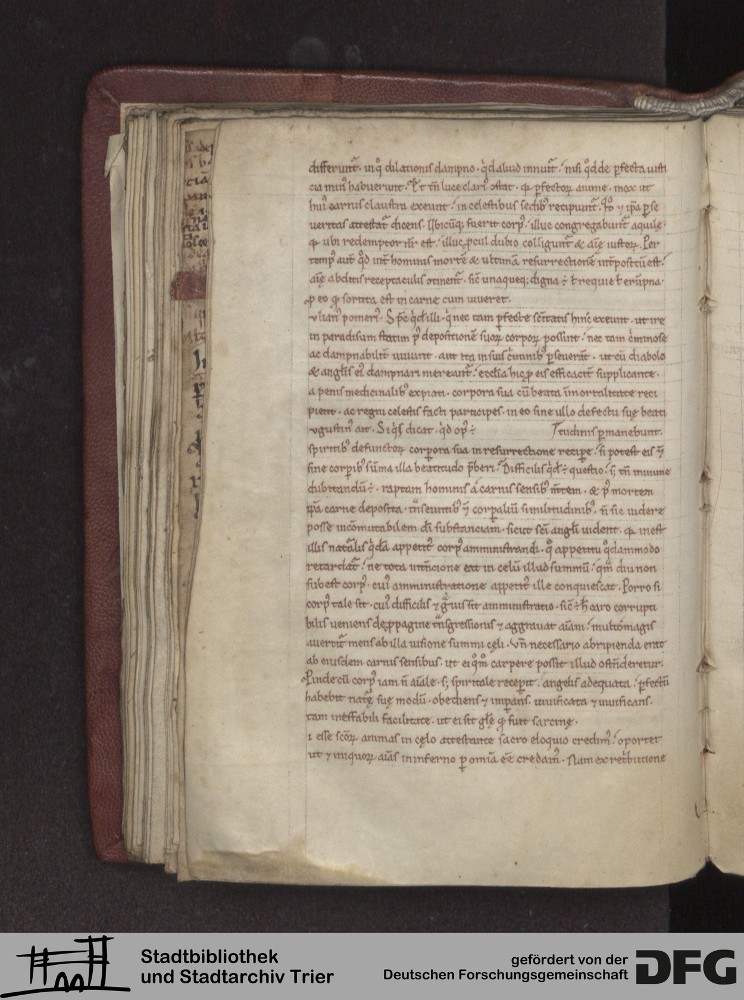 differunt᷑. in q̊ dilationis dampno. q̇d aliud innuit᷑. nisi q̊d de ꝑfecta iusti
cia min᷒ habuerunt. Et tn̄ luce clari᷒ ↄstat. ꝙ ꝑfectoꝝ anime. mox ut
hui᷒ carnis claustra exeunt. in celestibus sedib᷒ recipiunt᷑. qđ ⁊ ip̄a ꝑ se
ueritas attestat᷑ dicens. Vbicūq; fuerit corp᷒. illuc congregabunt᷑ aquile.
ꝙ ubi redemptor nr̄ est. illuc ꝓcul dubio colligunt᷑ & aīe iustoꝝ. Per
temp᷒ aut̄ q̊d int̄ hominis mortē & ultimā resurrectionē int̄positū est.
aīe abditis receptaculis ↄtinent᷑. sic̄ unaqueq; digna ÷ ł requie ł erūpna.
ꝓ eo ꝙ sortita est in carne cum uiueret.
vlian᷒ pomeri᷒. Sp̄c q̇d illi. q̇ nec tam ꝑfecte sc̄itatis hinc exeunt. ut ire
in paradisum statim p᷒ depositionē suoꝝ corporꝝ possint. nec tam c̄minose
ac dampnabilit̄ uiuunt. aut ita in suis c̄minib᷒ ꝑseuerāt. ut cū diabolo
& angl̄is ei᷒ dampnari mereant᷑. ecclīa hic ꝓ eis efficacit̄ supplicante.
a penis medicinalib᷒ expiati. corpora sua cū beata īmortalitate reci
pient. ac regni celestis facti participes. in eo sine ullo defectu suę beati
vgustin᷒ ait. Si q̇s dicat. q̇d op᷒ ÷ Ttudinis ꝑmanebunt.
spiritib᷒ defunctoꝝ corpora sua in resurrectione recipe᷑. si potest eis ⁊
sine corpib᷒ sūma illa beatitudo p̄beri. Difficilis q̇d ÷ questio. s; tn̄ minime
dubitandū ÷. raptam hominis a carnis sensib᷒ mt̄em. & p᷒ mortem
ip̄a carne deposita. tn̄seuntib᷒ ⁊ corpaliū similitudinib᷒. n̄ sic uidere
posse incōmutabilem dī substanciam. sicut sc̄i angl̄i uident. ꝙ inest
illis nat᷑alis q̇dā appetit᷒ corp᷒ amministrandi. q̊ appetitu q̊dammodo
retardat᷑. ne tota int̄ncione eat in celū illud summū. qm̄ diu non
subest corp᷒. cui᷒ amministratione appetit᷒ ille conquiescat. Porro si
corp᷒ tale sit. cui᷒ difficilis ⁊ gᷓuis sit amministratio. sic̄ ÷ h̄ caro corrupti
bilis ueniens de ꝓpagine tᷓnsgressionis ⁊ aggrauat aīam. multomagis
auertit᷑ mens ab illa uisione summi cęli. Vn̄ necessario abripienda erat
ab eiusdem carnis sensibus. ut ei q̊m̊ carpere posset illud ostn̄deretur.
Pinde cū corp᷒ iam n̄ aīale. s; spiritale recepit. angelis adequata. ꝑfectū
habebit natᷓę suę modū. obediens ⁊ imꝑans. uiuificata ⁊ uiuificans.
tam ineffabili facilitate. ut ei sit gl̄ę ꝙ fuit sarcine.
i esse sc̄oꝝ animas in cęlo attestante sacro eloquio credim᷒. oportet
ut ⁊ iniquoꝝ aīas in inferno ꝑ omīa eē credam᷒. Nam ex ret̄butione
Stadtbibliothek
und Stadtarchiv Trier
gefördert von der
Deutschen Forschungsgemeinschaft
DFG